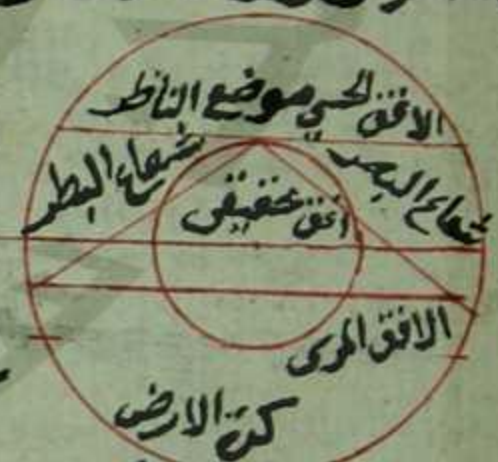 الافق الحسي موضع الناظر
شعاع البصر
شعاع البطر
افق حقيقى
الافق المرى
كرة الارض